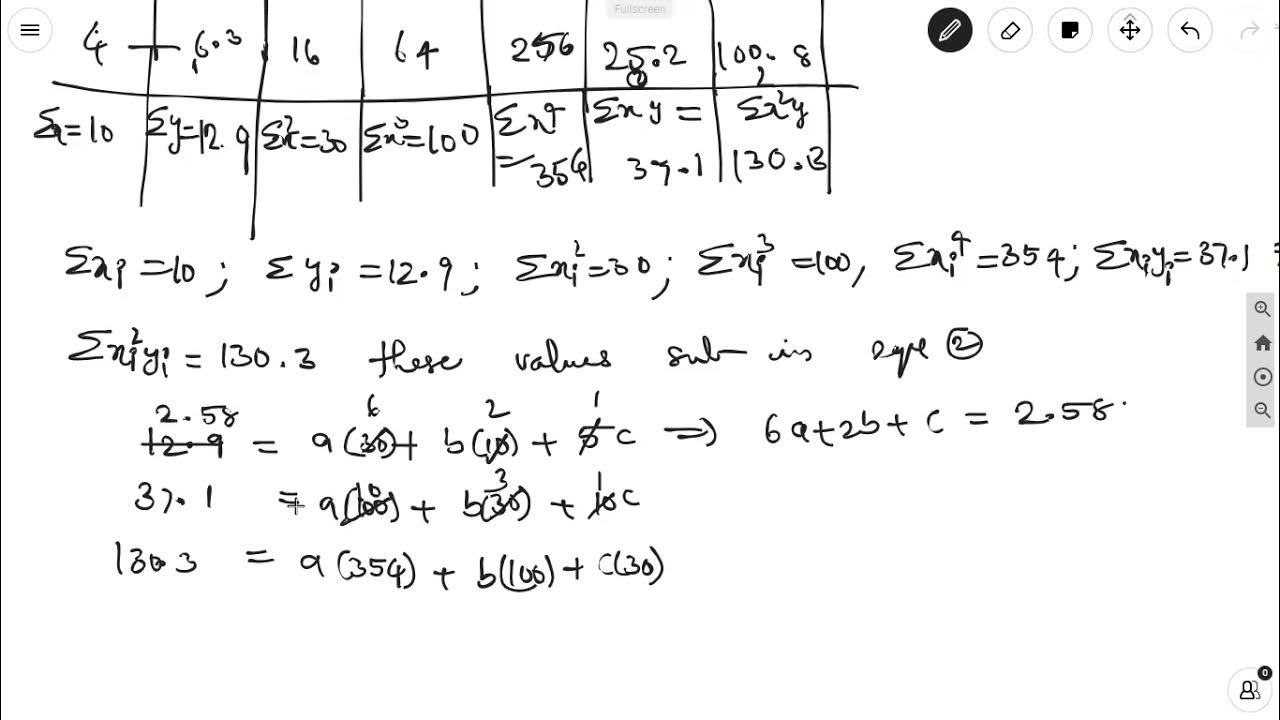 Fullscreen
4 6.3 16 64 256 25.2 100.8
Σx=10 Σy=12.9 Σx²=30 Σx³=100 Σx⁴=354 Σxy=37.1 Σx²y 130.3
Σxᵢ=10; Σyᵢ=12.9; Σxᵢ²=30; Σxᵢ³=100, Σxᵢ⁴=354; Σxᵢyᵢ=37.1
Σxᵢ²yᵢ=130.3 these values sub in eqn ②
2.58 6 2 1
12.9 = a(30)+ b(10)+ 5c ⇒ 6a+2b+c = 2.58
10 3 1
37.1 = a(100)+ b(30)+ 10c
130.3 = a(354)+ b(100)+ c(30)
0